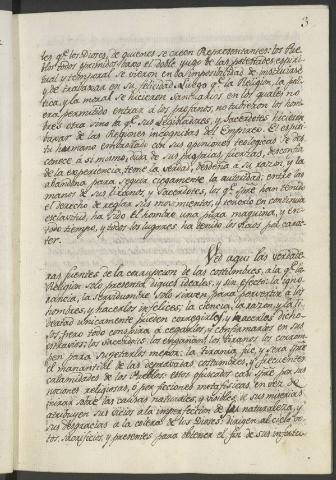 3
les q.e los Dioses, de quienes se creen Representantes: los Pue-
blos todos oprimidos bajo el doble yugo de las potestades espiri-
tual y temporal se vieron en la imposibilidad de instruirse
y de trabajar en su felicidad. Luego q.e la Religion, la poli-
tica, y la moral se hicieron Santuarios en los quales no
era permitido entrar a los profanos, no tubieron los hom-
bres otra que la q.e sus Legisladores, y Sacerdotes hicieron
bajar de las Regiones incognitas del Empireo. El espiri-
tu humano embrutado con sus opiniones teologicas se des-
conoce à si mismo, duda de sus propias fuerzas, desconfia
de la experiencia, teme la verdad, desdeña a su razon, y la
abandona para seguir ciegamente la autoridad: entre las
manos de sus tiranos, y Sacerdotes, los q.e han tenido
el derecho de reglar sus movimientos, y tenerlo en continua
esclavitud, ha sido el hombre una pura maquina, y en
todo tiempo, y todos los lugares ha tenido los vicios del carac-
ter.
Ved aqui las verdade-
ras fuentes de la corrupcion de las costumbres, a la q.e la
Religion solo presenta diques ideales, y sin efecto: la igno-
rancia, la servidumbre solo sirven para pervertir à los
hombres, y hacerlos infelices: la ciencia, la razon, y la li-
bertad unicamente pueden corregirlos, y hacerlos dicho-
sos, pero todo conspira à cegarlos, y confirmarlos en sus
estravios: los sacerdotes los engañan, los tiranos los corrom-
pen para sugetarlos mejor: la tirania fue, y sera
el manantial de las depravadas costumbres, y frecuentes
calamidades de los Pueblos: estos ofuscados por sus
nociones religiosas, ò por ficciones metafisicas, en vez de
mirar sobre las causas naturales, y visibles de sus miserias,
atribuyen sus vicios à la imperfeccion de su naturaleza, y
sus desgracias a la colera de los Dioses: dirigen al cielo vo-
tos, sacrificios, y presentes para obtener el fin de sus infortu